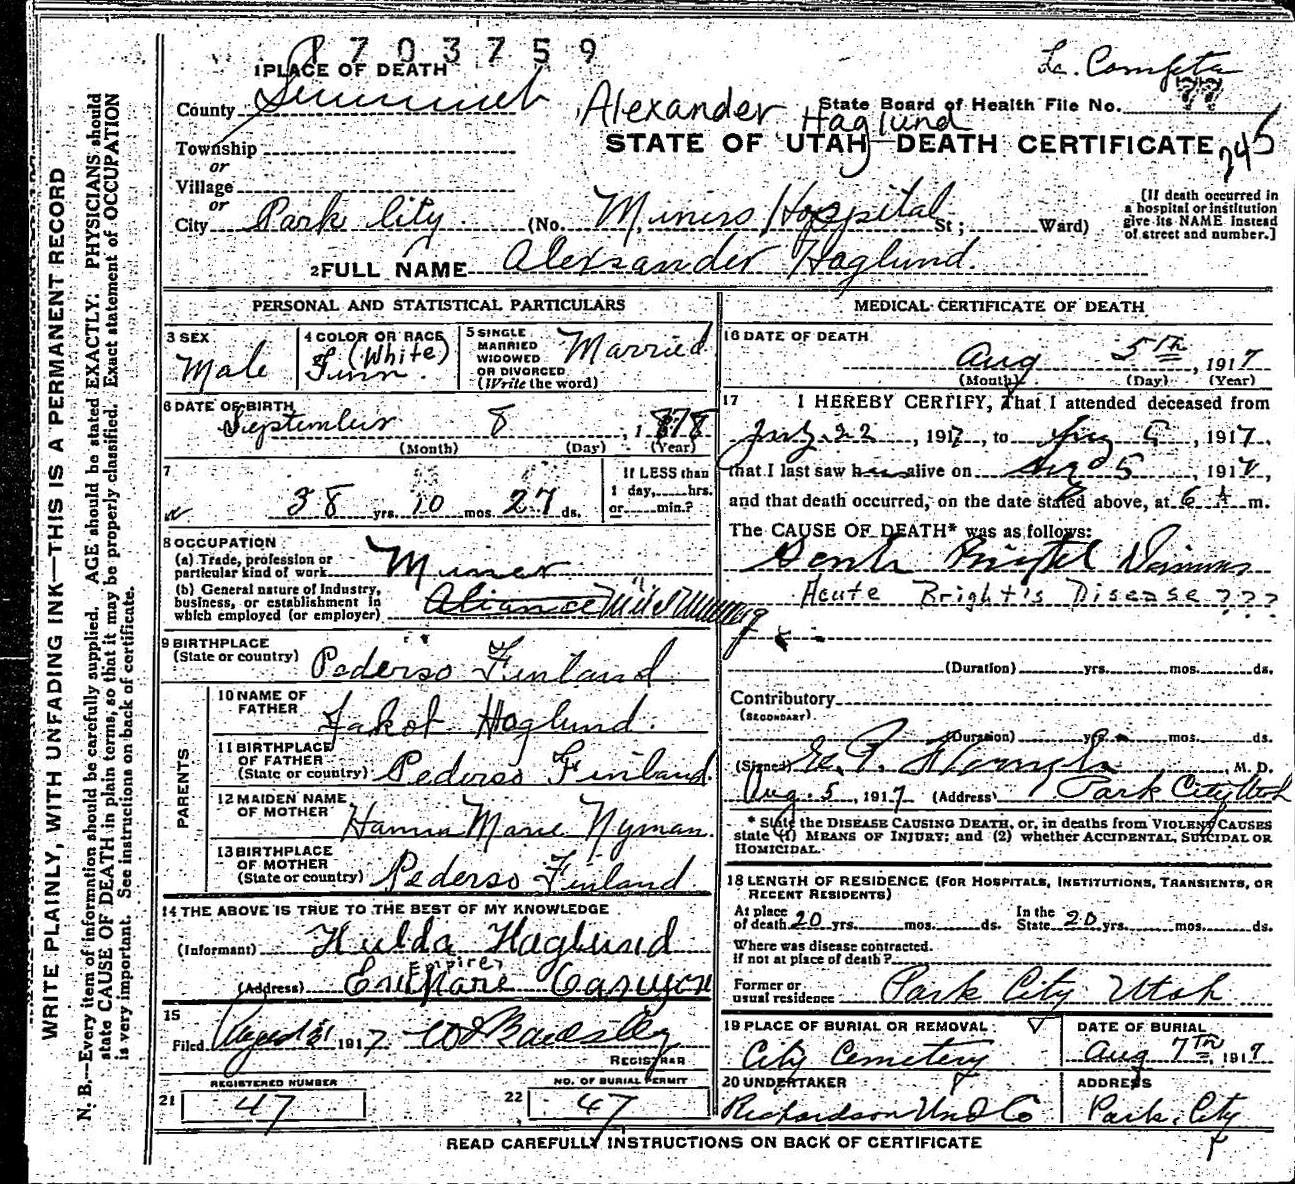 1703759
1 PLACE OF DEATH
La. Compta
County Summit
Alexander Haglund
State Board of Health File No. 77
STATE OF UTAH—DEATH CERTIFICATE
245
Township
or
Village
or
City Park City (No. Miners Hospital St; Ward)
[If death occurred in
a hospital or institution
give its NAME instead
of street and number.]
2 FULL NAME Alexander Haglund.
PERSONAL AND STATISTICAL PARTICULARS
3 SEX
Male
4 COLOR OR RACE
(White)
Finn.
5 SINGLE
MARRIED
WIDOWED
OR DIVORCED
(Write the word)
Married
6 DATE OF BIRTH
September 8, 1878
(Month) (Day) (Year)
7
38 yrs. 10 mos. 27 ds.
If LESS than
1 day, hrs.
or min.?
8 OCCUPATION
(a) Trade, profession or
particular kind of work Miner
(b) General nature of Industry,
business, or establishment in
which employed (or employer) Aliance
9 BIRTHPLACE
(State or country) Pederso Finland
PARENTS
10 NAME OF
FATHER
Jakob Haglund.
11 BIRTHPLACE
OF FATHER
(State or country) Pederso Finland.
12 MAIDEN NAME
OF MOTHER
Hanna Marie Nyman.
13 BIRTHPLACE
OF MOTHER
(State or country) Pederso Finland
14 THE ABOVE IS TRUE TO THE BEST OF MY KNOWLEDGE
(Informant) Hulda Haglund
Empire
(Address) Canyon
15
Filed August 1917
REGISTRAR
REGISTERED NUMBER
21 47
NO. OF BURIAL PERMIT
22 47
MEDICAL CERTIFICATE OF DEATH
16 DATE OF DEATH
Aug 5th, 1917
(Month) (Day) (Year)
17 I HEREBY CERTIFY, that I attended deceased from
July 22, 1917, to Aug 5, 1917,
that I last saw him alive on Aug 5 1917,
and that death occurred, on the date stated above, at 6 A m.
The CAUSE OF DEATH* was as follows:
Acute Bright's Disease ???
(Duration) yrs. mos. ds.
Contributory
(SECONDARY)
(Duration) yrs. mos. ds.
(Signed) M. D.
Aug. 5, 1917 (Address) Park City Utah
* State the DISEASE CAUSING DEATH, or, in deaths from VIOLENT CAUSES
state (1) MEANS OF INJURY; and (2) whether ACCIDENTAL, SUICIDAL OR
HOMICIDAL.
18 LENGTH OF RESIDENCE (FOR HOSPITALS, INSTITUTIONS, TRANSIENTS, OR
RECENT RESIDENTS)
At place
of death 20 yrs. mos. ds.
In the
State 20 yrs. mos. ds.
Where was disease contracted.
if not at place of death?
Former or
usual residence Park City Utah
19 PLACE OF BURIAL OR REMOVAL
City Cemetery
DATE OF BURIAL
Aug 7th, 1917
20 UNDERTAKER
Richardson Und Co
ADDRESS
Park City
READ CAREFULLY INSTRUCTIONS ON BACK OF CERTIFICATE
WRITE PLAINLY, WITH UNFADING INK—THIS IS A PERMANENT RECORD
N. B.—Every item of information should be carefully supplied. AGE should be stated EXACTLY. PHYSICIANS should
state CAUSE OF DEATH in plain terms, so that it may be properly classified. Exact statement of OCCUPATION
is very important. See instructions on back of certificate.